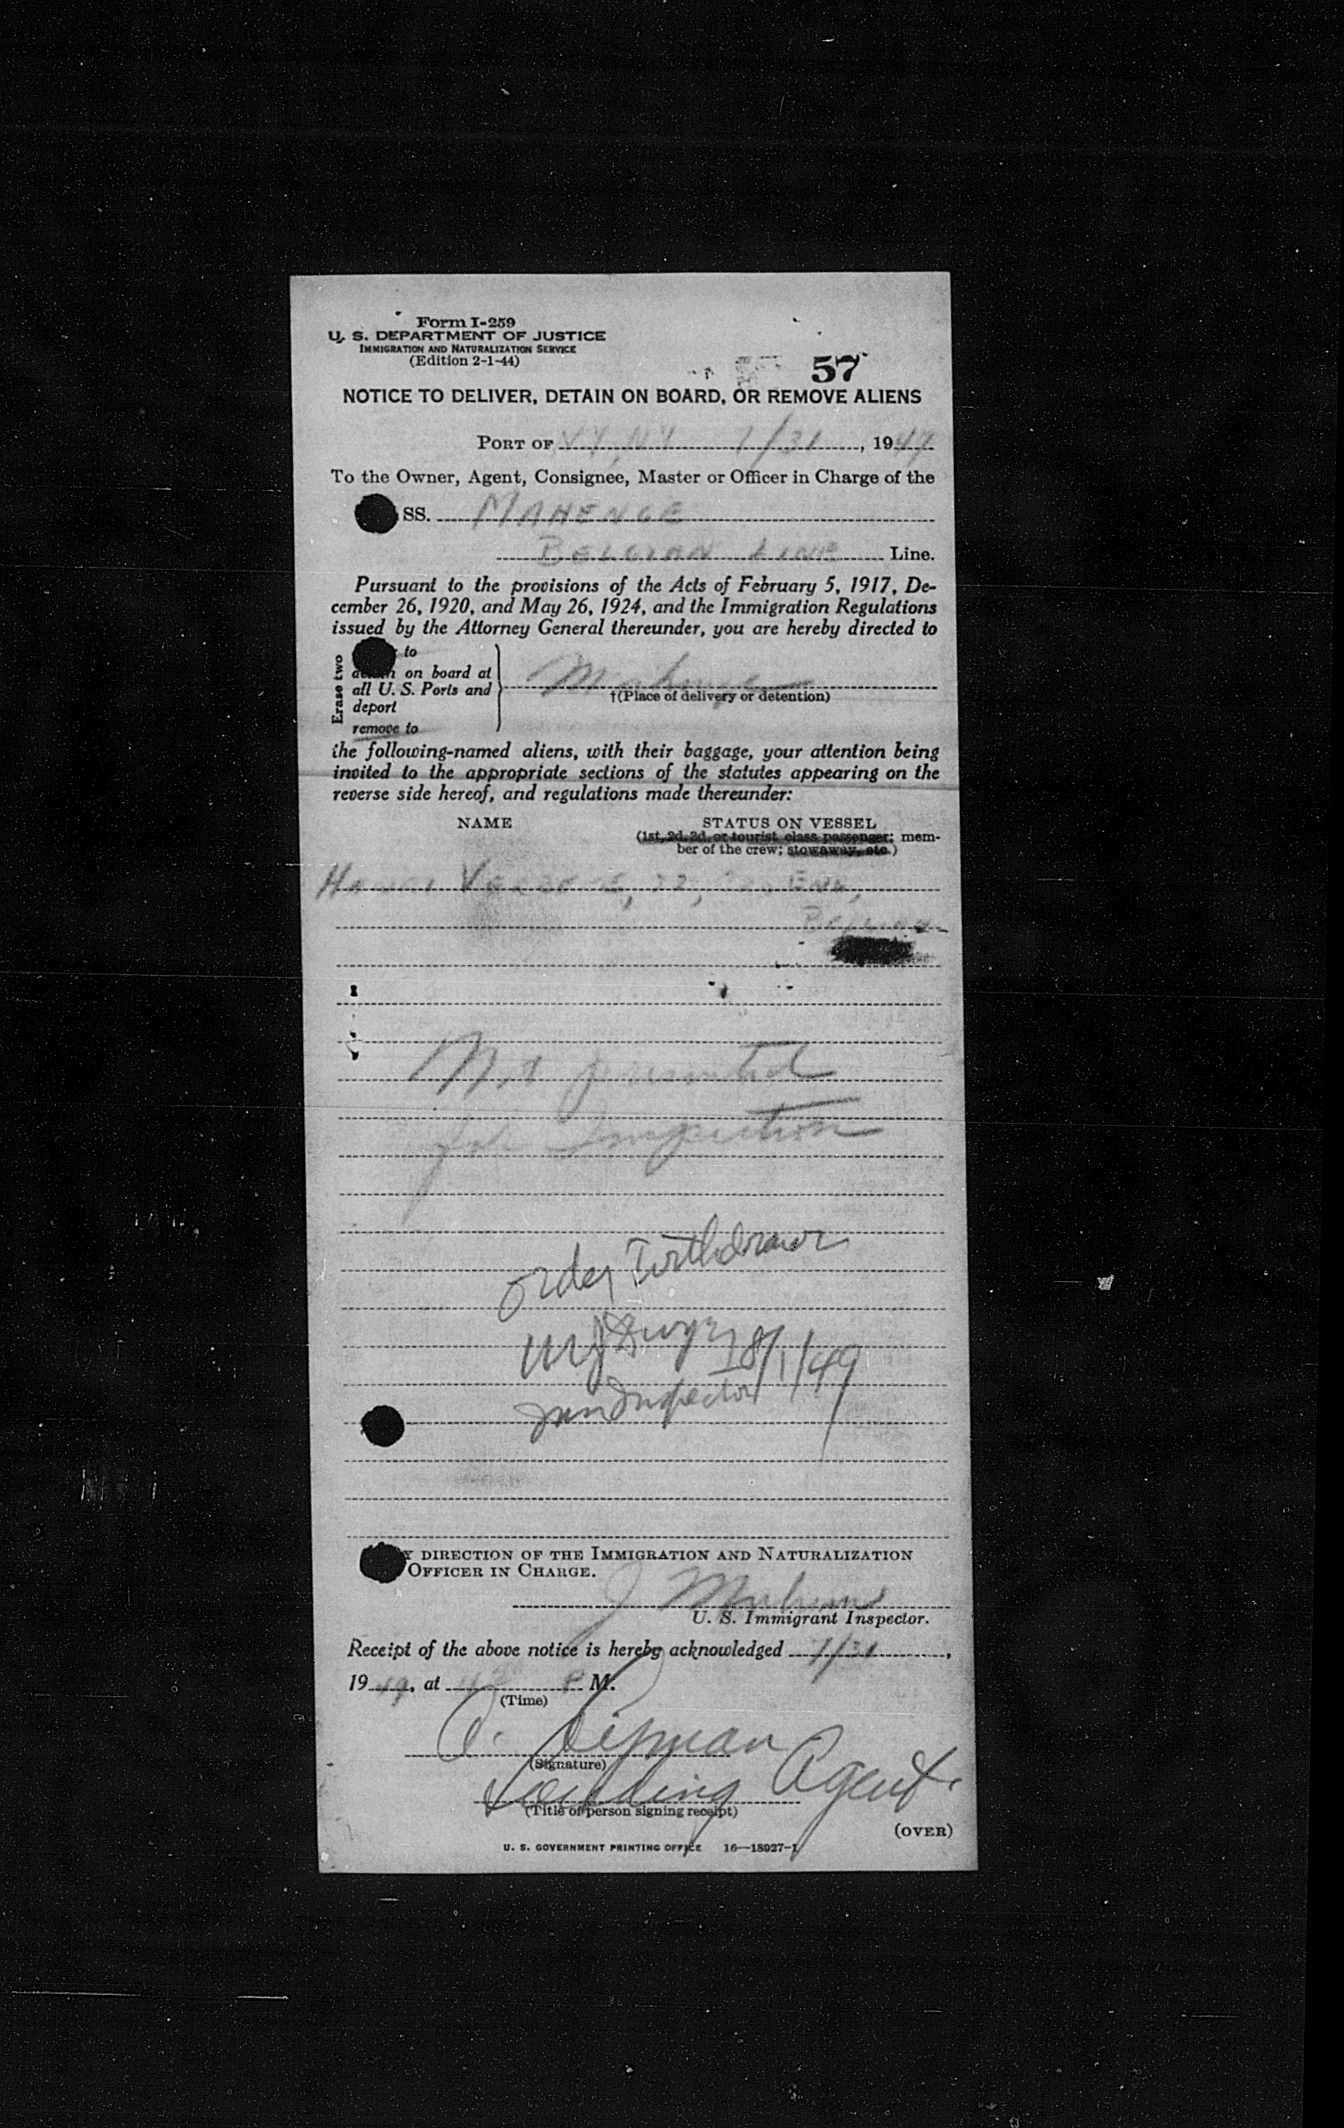 Form I-259
U. S. DEPARTMENT OF JUSTICE
IMMIGRATION AND NATURALIZATION SERVICE
(Edition 2-1-44)
57
NOTICE TO DELIVER, DETAIN ON BOARD, OR REMOVE ALIENS
PORT OF NY, NY 7/31, 1949
To the Owner, Agent, Consignee, Master or Officer in Charge of the
SS. MAHENGE
BELGIAN LINE Line.
Pursuant to the provisions of the Acts of February 5, 1917, De-
cember 26, 1920, and May 26, 1924, and the Immigration Regulations
issued by the Attorney General thereunder, you are hereby directed to
Erase two
to
on board at
all U. S. Ports and
deport
remove to
Mahenge
†(Place of delivery or detention)
the following-named aliens, with their baggage, your attention being
invited to the appropriate sections of the statutes appearing on the
reverse side hereof, and regulations made thereunder:
NAME STATUS ON VESSEL
(1st, 2d, 3d, or tourist class passenger; mem-
ber of the crew; stowaway, etc.)
22,
Not presented
for Inspection
order
8/1/49
Imm Inspector
Y DIRECTION OF THE IMMIGRATION AND NATURALIZATION
OFFICER IN CHARGE.
U. S. Immigrant Inspector.
Receipt of the above notice is hereby acknowledged 7/31,
1949, at P M.
(Time)
(Signature)
Agent.
(Title of person signing receipt)
(OVER)
U. S. GOVERNMENT PRINTING OFFICE 16—18927-1